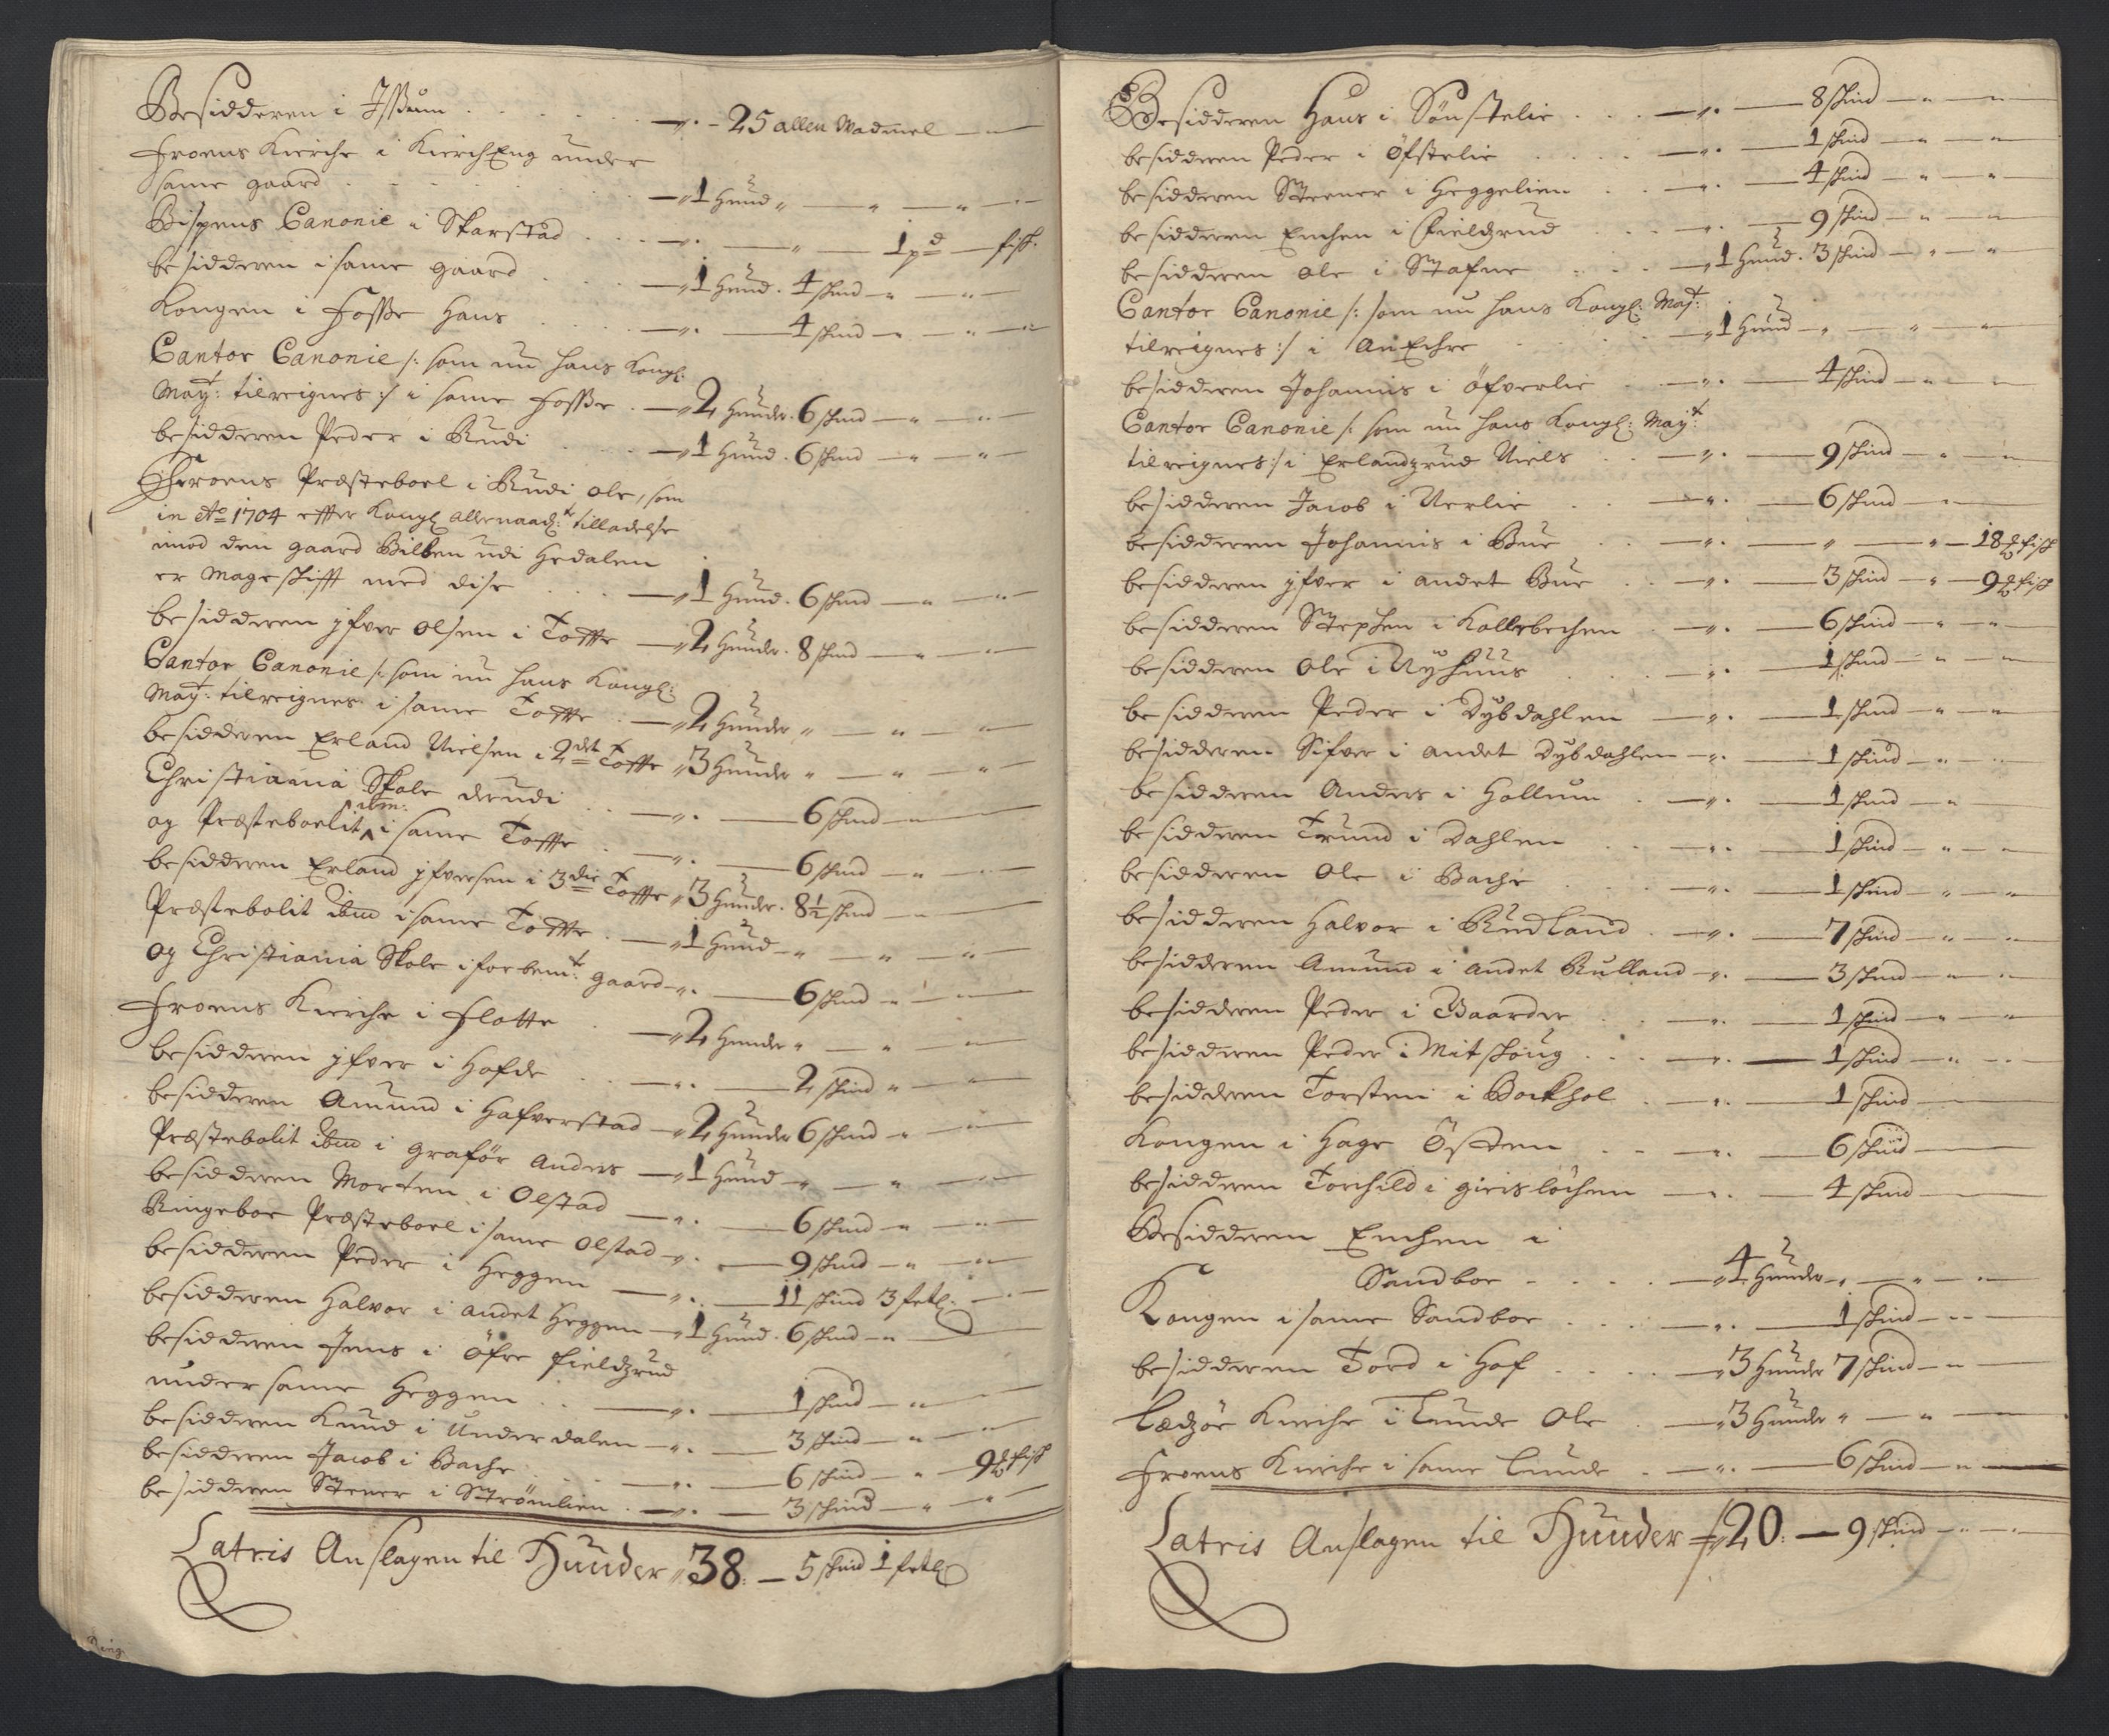 Besidderen i Issum . . . . . — „ . - 25 allen Wadmel —
Froens Kierche i KierchEng under
same gaard . . . . . — „ 1 Hund „ — „ — „ —
Bispens Canonie i Skarstad . . — „ . — „ — 1 pd — fisk.
besidderen i same gaard . . — „ 1 Hund . 4 skind — „ — „ —
Kongen i Fosse Hans . . — „ . — 4 skind — „ — „ —
Cantor Canonie /: som nu hans Kongl:
Mayt: tilreignes :/ i same Fosse . — „ 2 Hunder . 6 skind — „ — „ —
besidderen Peder i Rudi . . — „ 1 Hund . 6 skind — „ — „ —
Froens Præsteboel i Rudi Ole, som
in Ao 1704 effter Kongl allernaadt: tilladelse
imod den gaard Bilben udi Hedalen
er Mageskifft med dise . . — „ 1 Hund . 6 skind — „ — „ —
besidderen Jfver Olsen i Toffte — „ 2 Hunder . 8 skind — „ — „ —
Cantor Canonie /: som nu hans Kongl:
Mayt: tilreignes i same Toffte . — „ 2 Hunder „ — „ — „
besidderen Erland Nielsen i 2det Toffte „ 3 Hunder „ — „ — „ —
Christiania Skolederudi . . — „ . — 6 skind — „ —
og Præsteboelit ibm: i same Toffte . — „ . — 6 skind — „ —
besidderen Erland Jfversen i 3die Toffte „ 3 Hunder . 8½ skind — „ —
Præstebolit ibm i same Toffte . — „ 1 Hund — „ — „ — „ —
og Christiania Skole i forbemt: gaard — „ . — 6 skind — „ — „ —
Froens Kierche i Flotte . — „ 2 Hunder „ — „ — „ —
besidderen Jfver i Hofde . . — „ . — 2 skind „ — „ —
besidderen Amund i Hafverstad — „ 2 Hunder 6 skind — „ — „ —
Præstebolit ibm i Grafør Anders — „ 1 Hund — „ — „ — „ —
besidderen Morten i Olstad — „ . — 6 skind — „ — „ —
Ringeboe Præsteboel i same Olstad — „ . — 9 skind — „ — „ —
besidderen Peder i Heggen — „ . — 11 skind 3 fetl: —
besidderen Halvor i andet Heggen — „ 1 Hund . 6 skind — „ —
besidderen Jens i Øfre Fieldzrud
under same Heggen . . — „ . — 1 skind — „ —
besidderen Knud i Underdalen — „ . — 3 skind — „ — „ —
besidderen Jacob i Bache . — „ . — 6 skind — „ — 9 ℔ fisk
besidderen Stener i Strømlien . — „ . — 3 skind — „ — „ —
Latris Anslagen til Hunder „ 38 : — 5 skind 1 fetl
Ring
Besidderen Hans i Sønstelie . . . — „ . — 8 skind — „ — „ —
besidderen Peder i Øfstelie . . . — „ . — 1 skind — „ — „ —
besidderen Steener i Heggelien . . — „ . — 4 skind — „ — „ —
besidderen Enchen i Fieldzrud . . . — „ . — 9 skind — „ — „ —
besidderen Ole i Stafne . . . — „ 1 Hund . 3 skind — „ — „
Cantor Canonie /: som nu hans Kongl: Mayt:
tilreignes :/ i AnEchre . . . — „ 1 Hund — „ — „ — „
besidderen Johannis i Øfverlie . — „ . — 4 skind — „ — „ —
Cantor Canonie /: som nu hans Kongl: Mayt:
tilreignes :/ i Erlandzrud Niels . . — „ . — 9 skind — „ — „
besidderen Jacob i Nerlie . . — „ . — 6 skind — „ —
besidderen Johannis i Bue . . — „ . — „ — „ — 18 ℔ fisk
besidderen Jfver i andet Bue . — „ . — 3 skind — „ — 9 ℔ fisk
besidderen Stephen i Kollebechen . — „ . — 6 skind — „ — „ —
besidderen Ole i Nyhuus . . . — „ . — 1 skind — „ — „ —
besidderen Peder i Dybdahlen — „ . — 1 skind — „ — „
besidderen Sifver i andet Dybdahlen — „ . — 1 skind — „ — „
besidderen Anders i Hollum . — „ . — 1 skind — „
besidderen Trund i Dahlen . . — „ . — 1 skind — „ — „
besidderen Ole i Bache . . . — „ . — 1 skind — „ — „
besidderen Halvor i Rudland . — „ . — 7 skind — „ — „
besidderen Amund i andet Rulland — „ . — 3 skind — „ — „
besidderen Peder i Baarder . . — „ . — 1 skind — „ — „
besidderen Peder i Mitskoug . . . — „ . — 1 skind — „ — „
besidderen Torsten i Bockhol . — „ . — 1 skind —
Kongen i Hage Østen . . — „ . — 6 skind —
besidderen Torchild i Girisløchen — „ . — 4 skind —
Besidderen Enchen i
Sandboe - . . . — „ 4 Hunder — „ — „ — „
Kongen i same Sandboe . . . . — „ . — 1 skind — „ —
besidderen Tord i Hof . . . . — „ 3 Hunder 7 skind — „ —
Lædzøe Kierche i Lunde Ole . — „ 3 Hunder „ — „ —
Froens Kierche i same Lunde . — „ . — 6 skind — „ —
Latris Anslagen til Hunder „ 20 : — 9 skind — „ — „